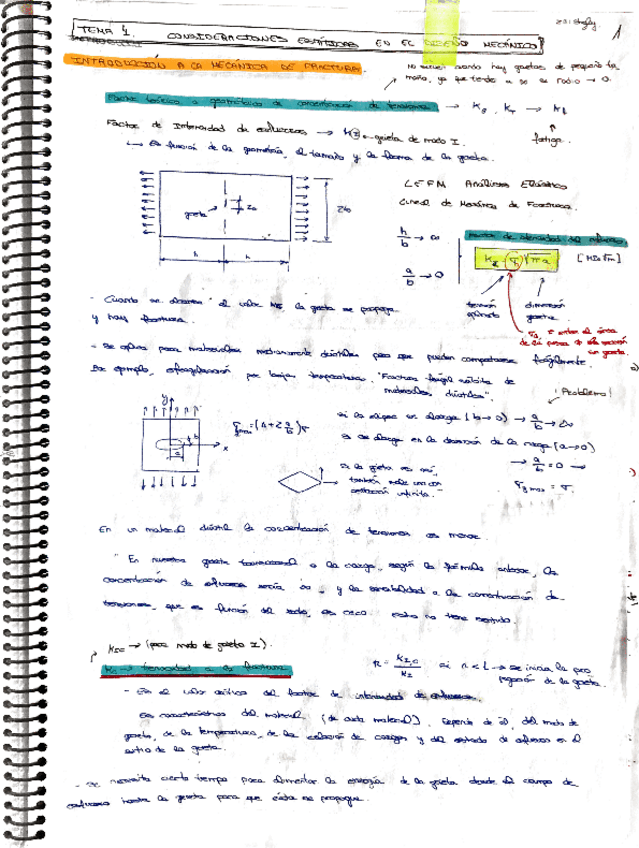 TEMA 1. CONSIDERACIONES ESTÁTICAS EN EL DISEÑO MECÁNICO
1
INTRODUCCIÓN A LA MECÁNICA DE FRACTURA.
no sirven cuando hay grietas de pequeño ta
maño, ya que tende a so su radio → 0.
Factor teórico o geométrico de concentración de tensiones → Kt
Factor de Intensidad de esfuerzos → KI ← grieta de modo I.
fatiga.
↳ Es función de la geometría, el tamaño y la forma de la grieta.
LEFM Análisis Elástico
Lineal de Mecánica de Fractura.
grieta
2a
2b
h
h
h/b → ∞
a/b → 0
Factor de intensidad del esfuerzo
KI = σ √πa [MPa √m]
tensión
dimensión
grieta
- Cuando se alcanza el valor KIC la grieta se propaga
y hay fractura.
- Se aplica para materiales medianamente dúctiles pero que pueden comportarse frágilmente.
Por ejemplo, por bajas temperaturas. "Fractura frágil súbita de
materiales dúctiles".
¡Problema!
y
x
a
b
σymax = (1 + 2 a/b) σ
si la elipse se alarga (b→0) → a/b → ∞
si se alarga en la dirección de la carga (a→0)
→ a/b = 0 →
σymax = σ.
Si la grieta es así,
también
infinita."
En un material dúctil la concentración de tensiones es menor.
" En nuestra grieta transversal a la carga, según la fórmula anterior, la
concentración de esfuerzos sería ∞, y la sensibilidad a la concentración de
tensiones, que es función del radio, es cero esto no tiene sentido.
KIC → (para modo de grieta I).
Kc → tenacidad a la fractura
n = KIC/KI si n < 1 → se inicia la pro
pagación de la grieta.
- Es el valor crítico del factor de intensidad de esfuerzos.
Es característico del material (de cada material). Depende de él, del modo de
grieta, de la temperatura, de la relación de cargas y del estado de esfuerzos en el
de la grieta.
- Se necesita cierto tiempo para alimentar la energía de la grieta desde el campo de
esfuerzo hasta la grieta para que ésta se propague.